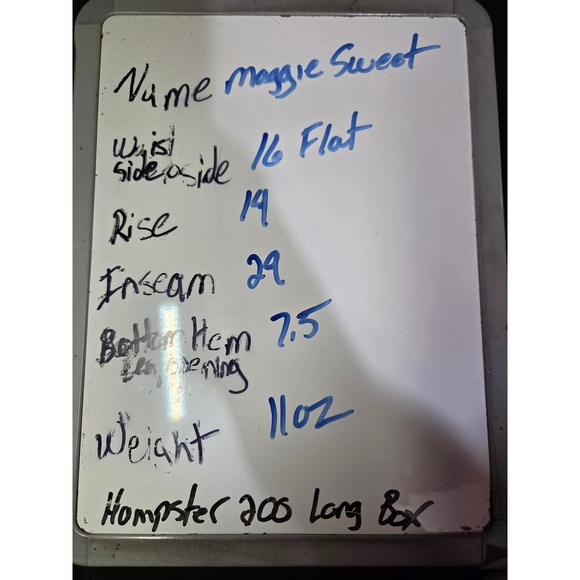 Name Maggie Sweet
Waist
side to side 16 Flat
Rise 14
Inseam 29
Bottom Hem 7.5
Leg opening
Weight 11oz
Hompster 200 Long Box